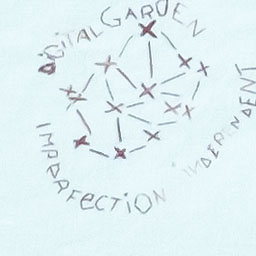 DIGITAL GARDEN
INDEPENDENT
IMPARFECTION